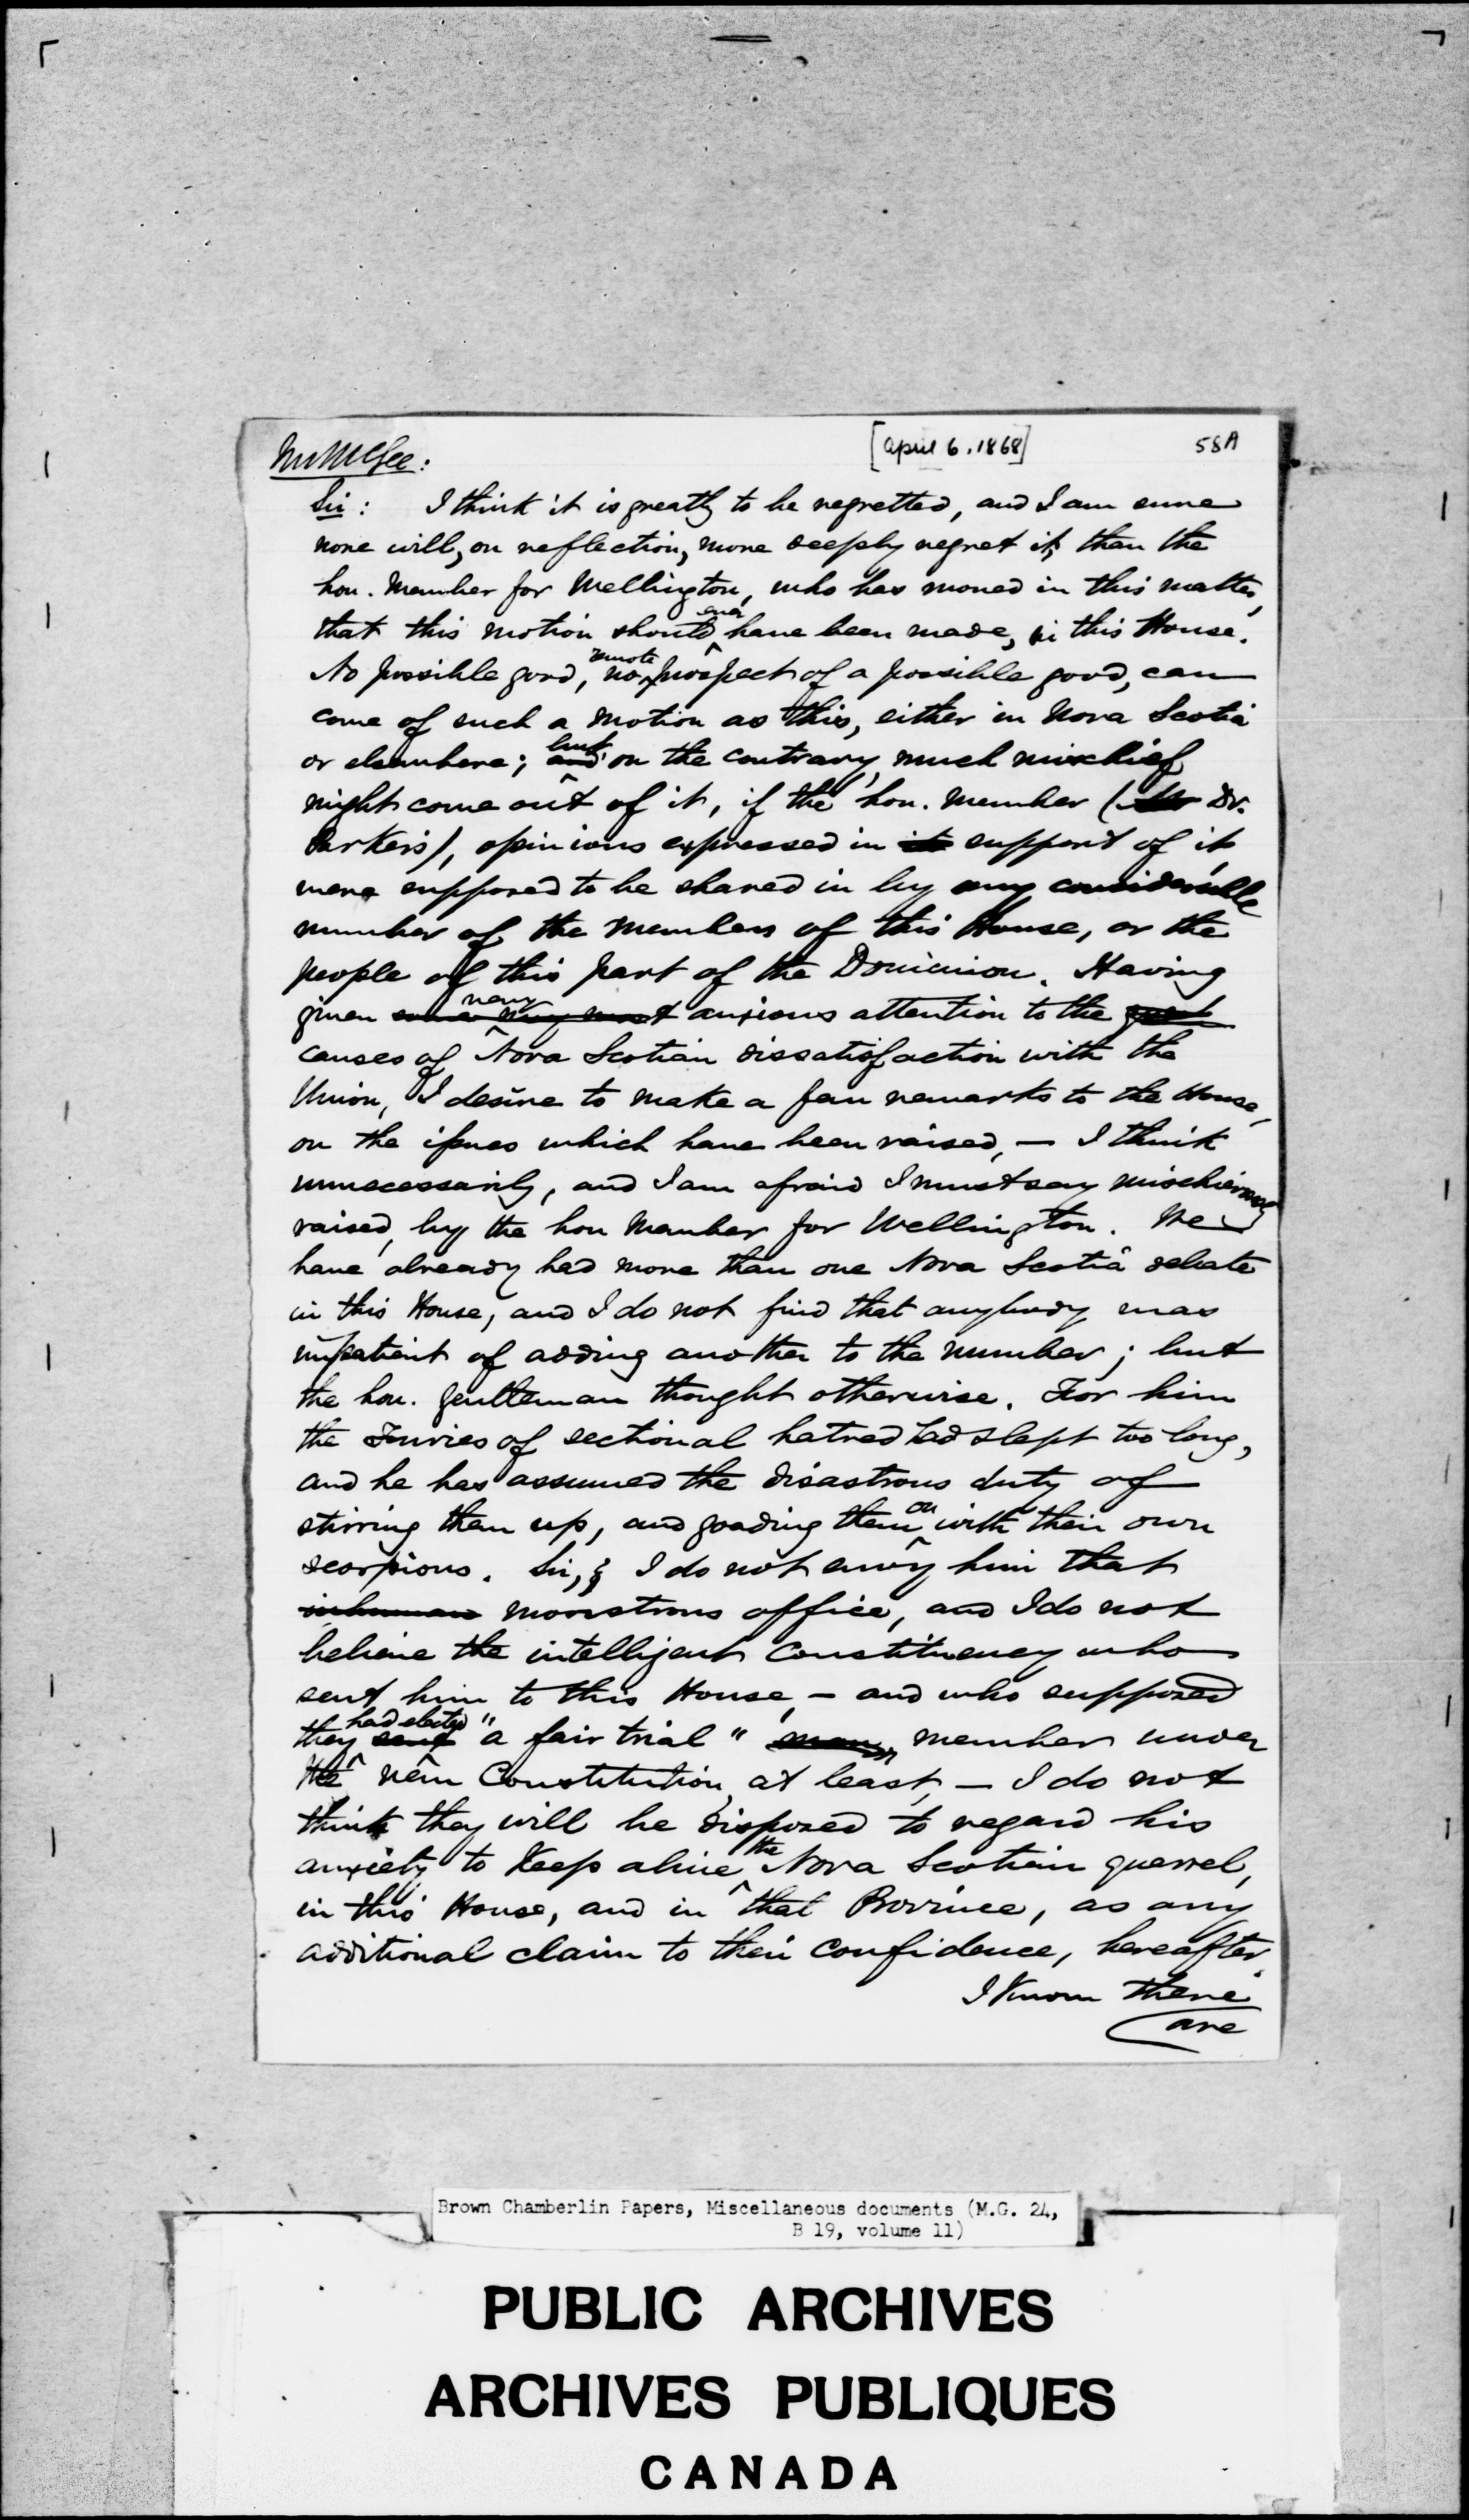 [April 6, 1868] 58A
Mr McGee:
Sir: I think it is greatly to be regretted, and I am sure
none will, on reflection, more deeply regret it, than the
hon. Member for Wellington, who has moved in this matter,
that this motion should ever have been made, in this House.
No possible good, no remote prospect of a possible good, can
come of such a motion as this, either in Nova Scotia
or elsewhere; and but on the contrary, much mischief
might come out of it, if the hon. Member (Mr Dr.
Parker's), opinions expressed in its support of it
were supposed to be shared in by any considerable
number of the Members of this House, or the
people of this part of the Dominion. Having
given some very most very anxious attention to the great
causes of Nova Scotian dissatisfaction with the
Union, I desire to make a few remarks to the House,
on the issues which have been raised, — I think
unnecessarily, and I am afraid I must say mischievously
raised, by the hon Member for Wellington. We
have already had more than one Nova Scotia debate
in this House, and I do not find that anybody was
impatient of adding another to the number; but
the hon. gentleman thought otherwise. For him
the Furies of sectional hatred had slept too long,
and he has assumed the disastrous duty of
stirring them up, and goading them on with their own
scorpions. Sir, I do not envy him that
inhuman monstrous office, and I do not
believe the intelligent Constituency who
sent him to this House, — and who supposed
they sent had elected "a fair trial" member under
the new Constitution, at least, — I do not
think they will be disposed to regard his
anxiety to keep alive the Nova Scotian quarrel,
in this House, and in that Province, as any
additional claim to their confidence, hereafter.
I know there
are
Brown Chamberlin Papers, Miscellaneous documents (M.G. 24,
B 19, volume 11)
PUBLIC ARCHIVES
ARCHIVES PUBLIQUES
CANADA